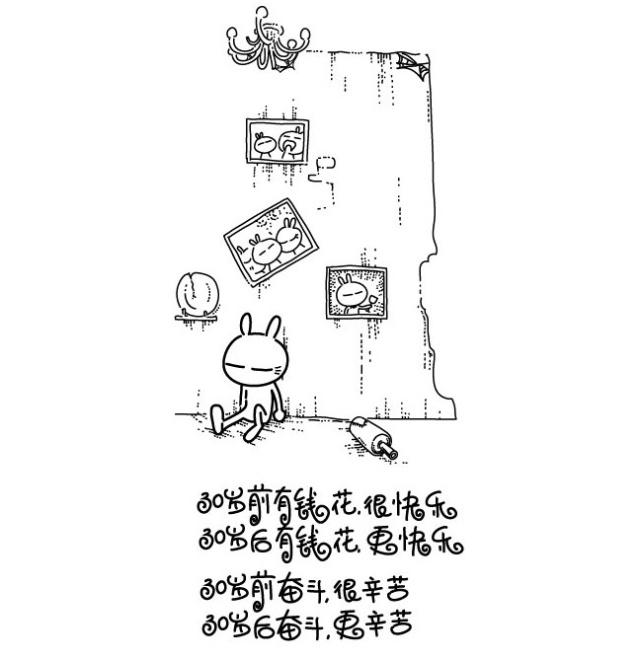 30岁前有钱花,很快乐
30岁后有钱花,更快乐
30岁前奋斗,很辛苦
30岁后奋斗,更辛苦